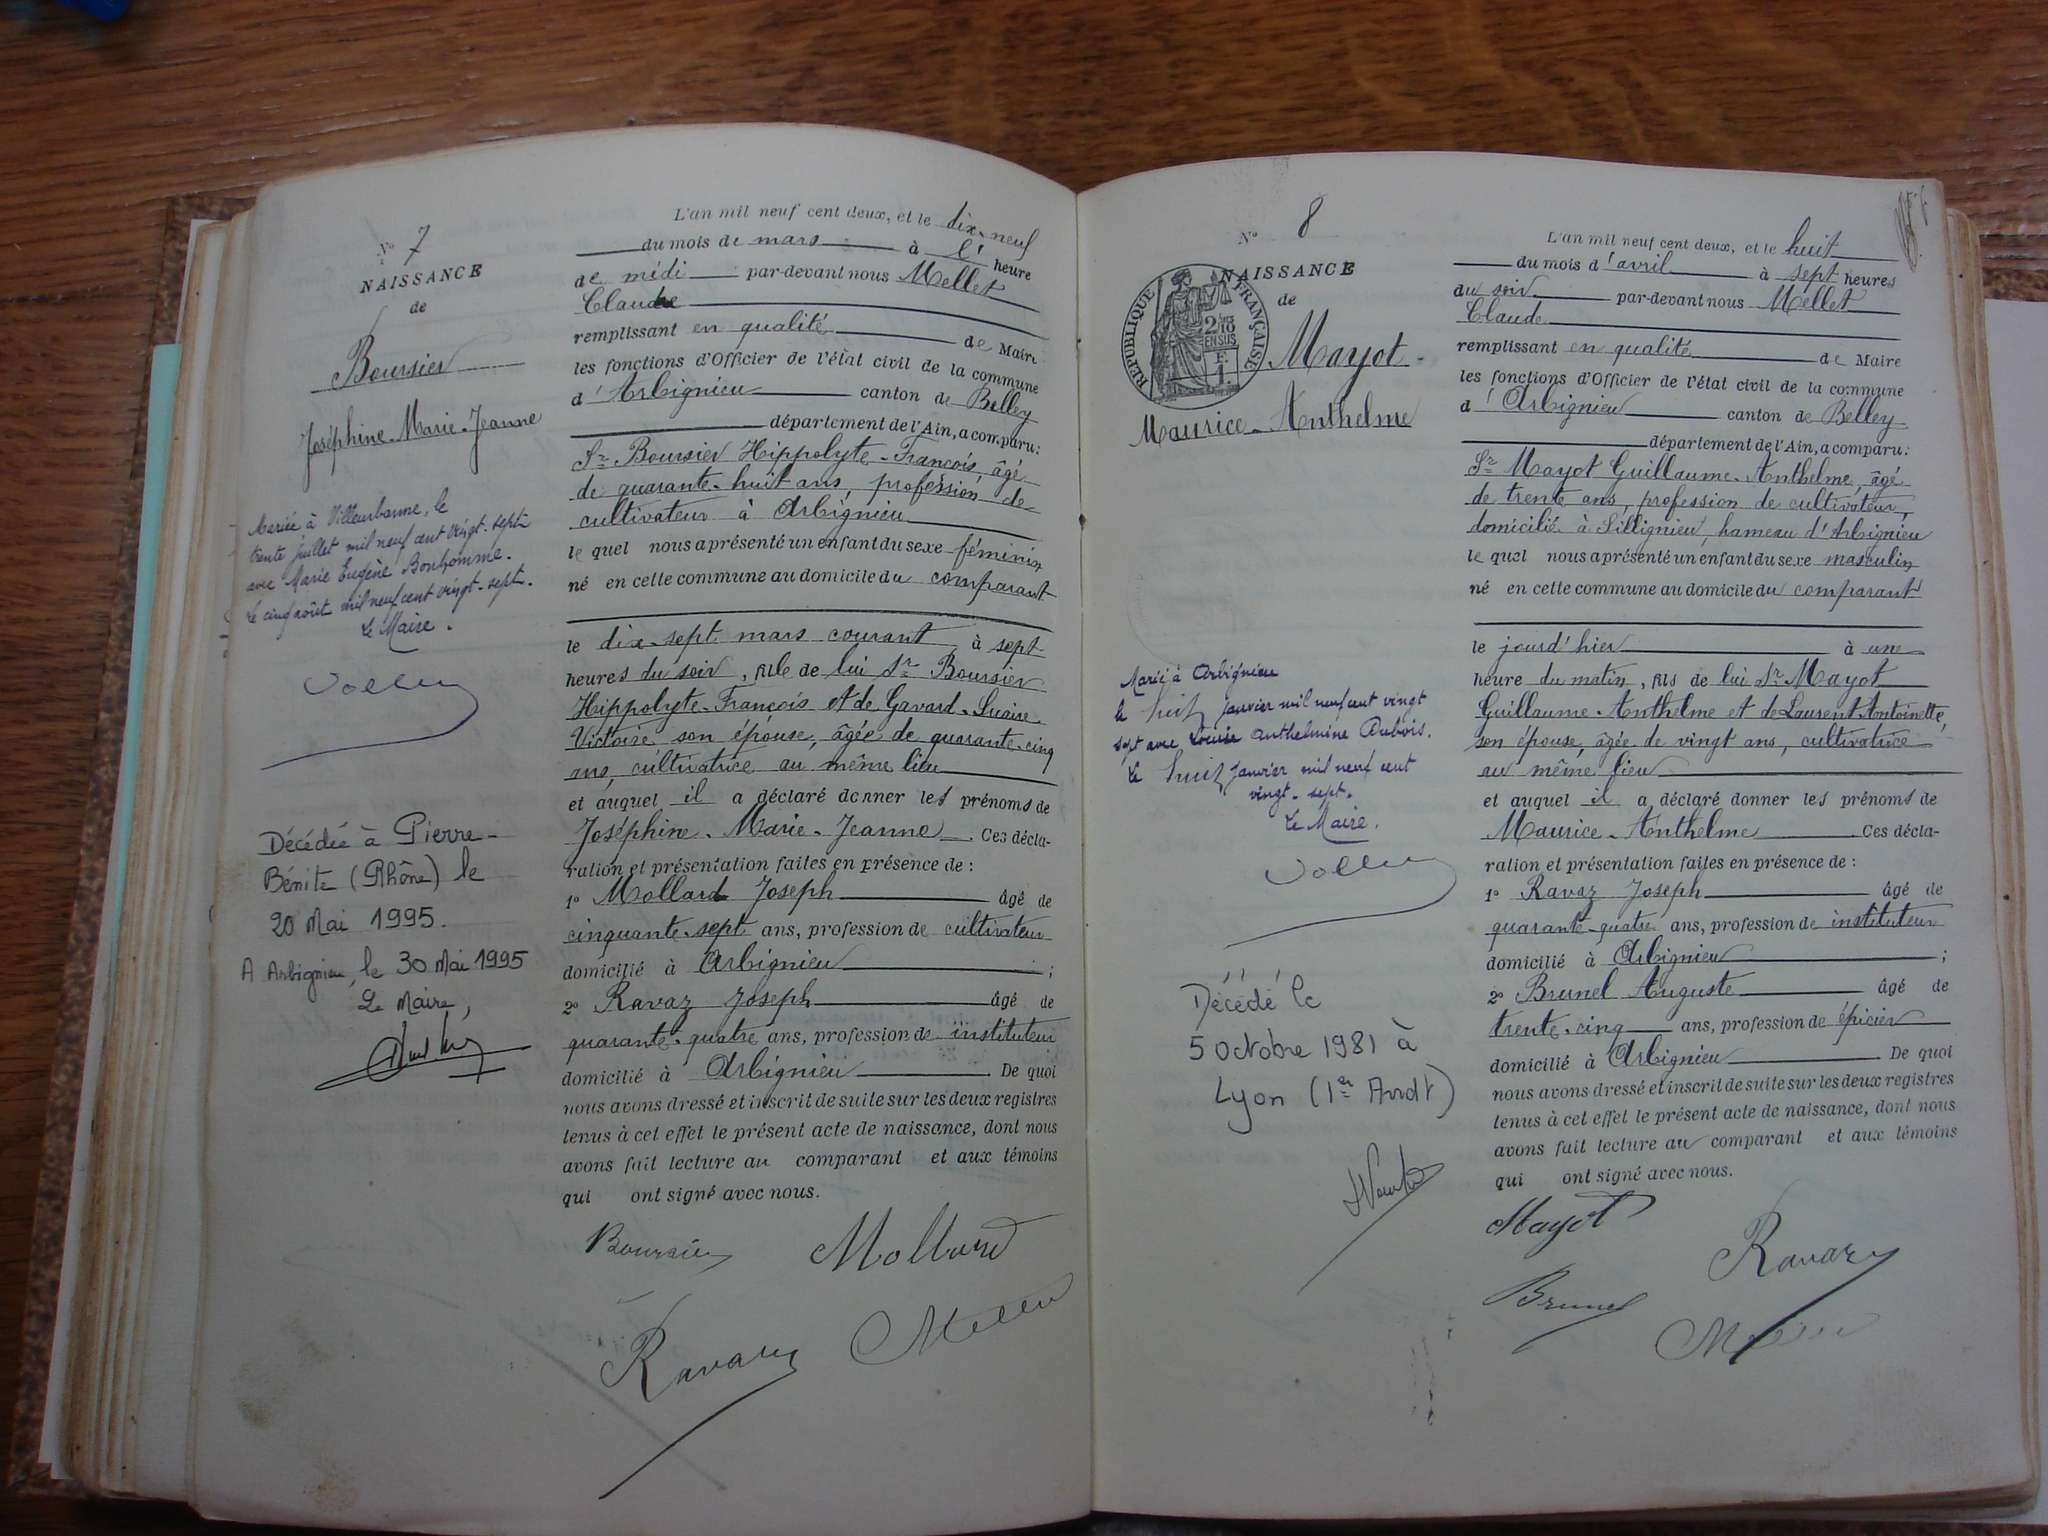 N° 7
NAISSANCE
de
Boursier
Joséphine-Marie-Jeanne
Mariée à Villeurbanne, le
trente juillet mil neuf cent vingt-sept
avec Marie Eugène Bonhomme.
Le cinq août mil neuf cent vingt-sept.
Le Maire.
Décédée à Pierre-
Bénite (Rhône) le
20 Mai 1995.
A Arbignieu, le 30 Mai 1995
Le Maire,
L'an mil neuf cent deux, et le dix-neuf
du mois de mars à l' heure
de midi par-devant nous Mellet
Claude
remplissant en qualité de Maire
les fonctions d'Officier de l'état civil de la commune
d'Arbignieu canton de Belley
département de l'Ain, a comparu:
Sr Boursier Hippolyte-François, âgé
de quarante-huit ans, profession de
cultivateur à Arbignieu
le quel nous a présenté un enfant du sexe féminin
né en cette commune au domicile du comparant
le dix-sept mars courant à sept
heures du soir, fille de lui Sr Boursier
Hippolyte-François et de Gavard-Suaire
Victoire son épouse, âgée de quarante-cinq
ans, cultivatrice au même lieu
et auquel il a déclaré donner les prénoms de
Joséphine-Marie-Jeanne. Ces décla-
ration et présentation faites en présence de :
1° Mollard Joseph âgé de
cinquante-sept ans, profession de cultivateur
domicilié à Arbignieu ;
2° Ravaz Joseph âgé de
quarante-quatre ans, profession de instituteur
domicilié à Arbignieu. De quoi
nous avons dressé et inscrit de suite sur les deux registres
tenus à cet effet le présent acte de naissance, dont nous
avons fait lecture au comparant et aux témoins
qui ont signé avec nous.
Boursier Mollard
Ravaz Mellet
N° 8
NAISSANCE
de
RÉPUBLIQUE FRANÇAISE
2/10
EN SUS
Mayot
Maurice-Anthelme
Marié à Arbignieu
le huit janvier mil neuf cent vingt
sept avec Louise Anthelmine Dubois.
Le huit janvier mil neuf cent
vingt-sept.
Le Maire.
Décédé le
5 Octobre 1981 à
Lyon (1er Arrdt)
L'an mil neuf cent deux, et le huit
du mois d'avril à sept heures
du soir par-devant nous Mellet
Claude
remplissant en qualité de Maire
les fonctions d'Officier de l'état civil de la commune
d'Arbignieu canton de Belley
département de l'Ain, a comparu:
Sr Mayot Guillaume-Anthelme, âgé
de trente ans, profession de cultivateur,
domicilié à Sillignieu, hameau d'Arbignieu
le quel nous a présenté un enfant du sexe masculin
né en cette commune au domicile du comparant
le jourd'hier à une
heure du matin, fils de lui Sr Mayot
Guillaume-Anthelme et de Laurent Antoinette,
son épouse, âgée de vingt ans, cultivatrice
au même lieu
et auquel il a déclaré donner les prénoms de
Maurice-Anthelme. Ces décla-
ration et présentation faites en présence de :
1° Ravaz Joseph âgé de
quarante-quatre ans, profession de instituteur
domicilié à Arbignieu ;
2° Brunel Auguste âgé de
trente-cinq ans, profession de épicier
domicilié à Arbignieu. De quoi
nous avons dressé et inscrit de suite sur les deux registres
tenus à cet effet le présent acte de naissance, dont nous
avons fait lecture au comparant et aux témoins
qui ont signé avec nous.
Mayot
Ravaz
Brunel
Mellet